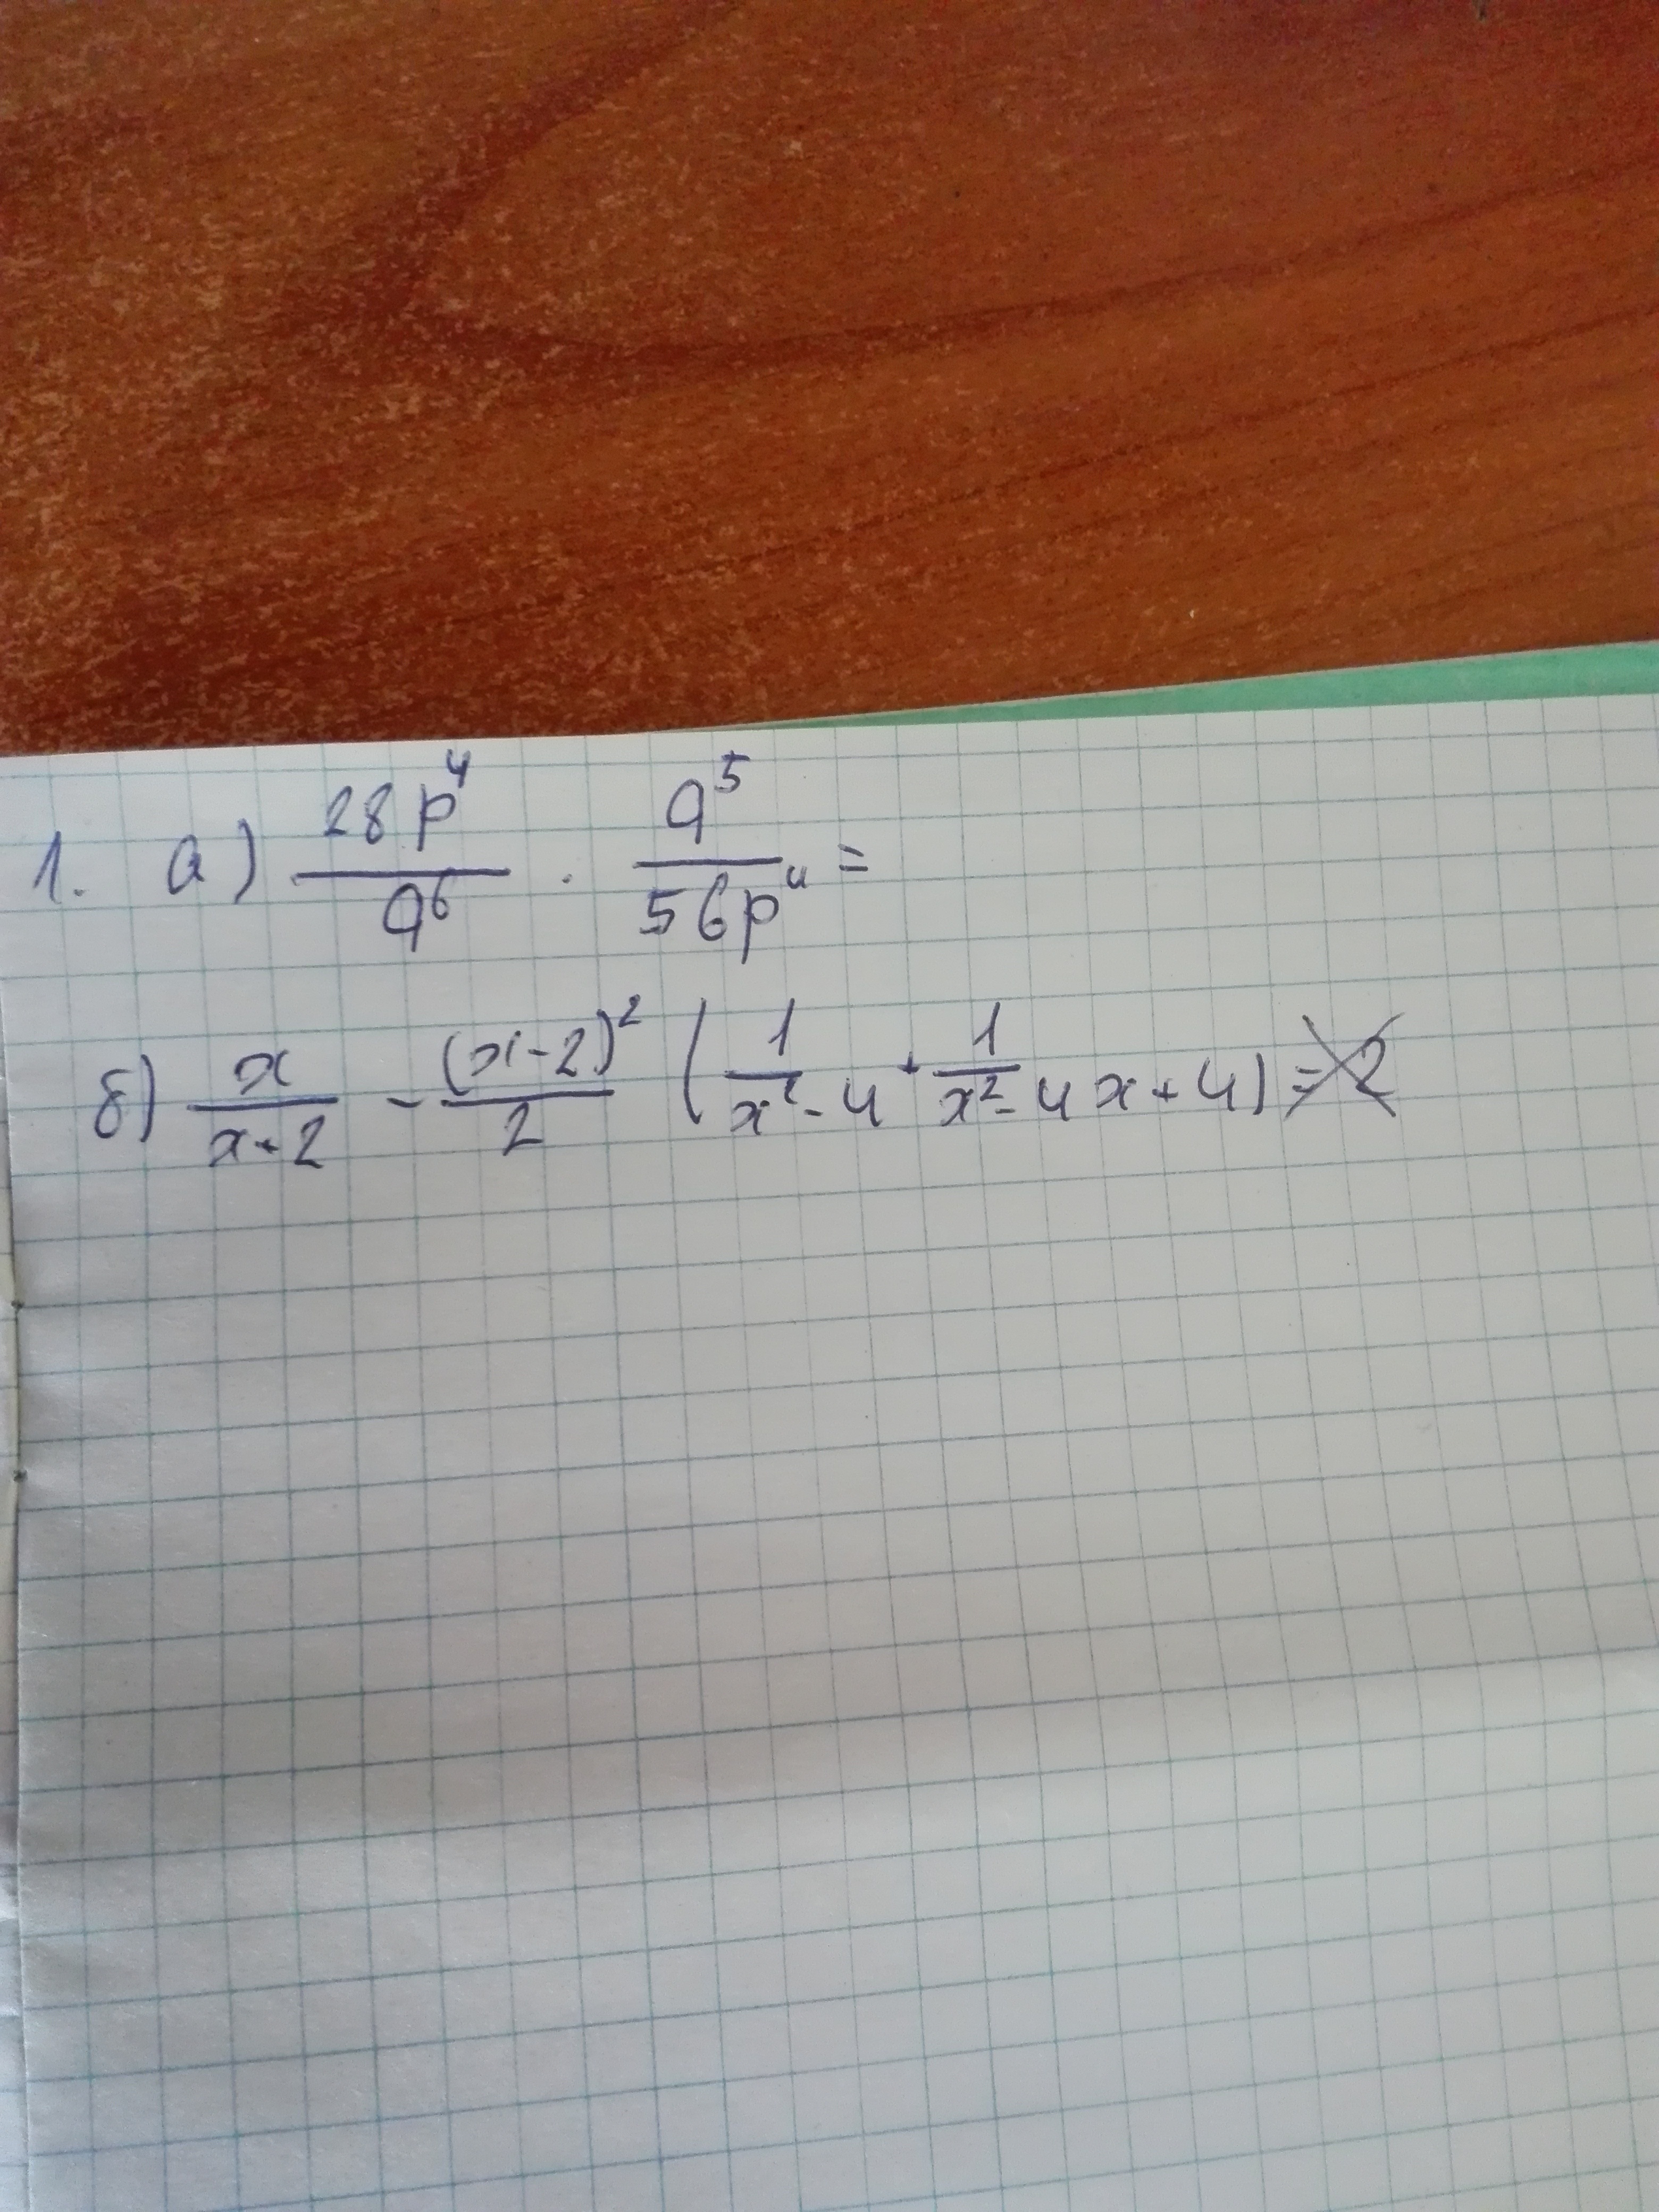 1. а) 28p⁴/q⁶ · q⁵/56p⁴ =
б) x/x+2 - (x-2)²/2 (1/x²-4 + 1/x²-4x+4) = 2